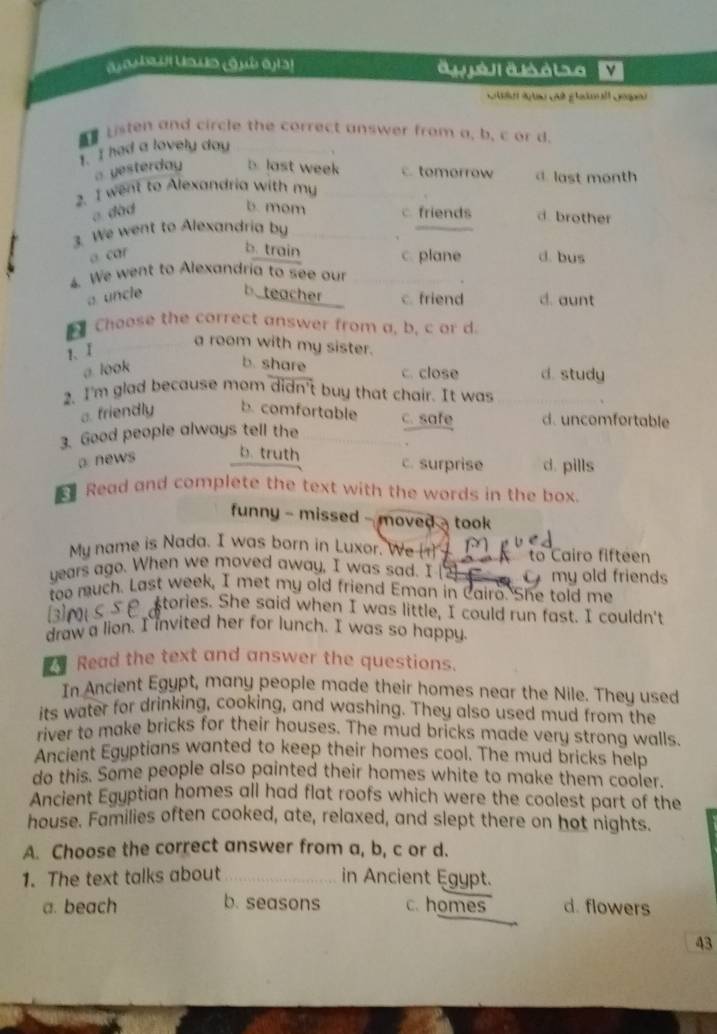 محافظة الغربية ٧
إدارة شرق طنطا التعليمية
1 Listen and circle the correct answer from a, b, c or d.
1. I had a lovely day
a. yesterday b. last week c. tomorrow d. last month
2. I went to Alexandria with my
a. dad b. mom c. friends d. brother
3. We went to Alexandria by
a. car b. train c. plane d. bus
4. We went to Alexandria to see our
a. uncle b. teacher c. friend d. aunt
2 Choose the correct answer from a, b, c or d.
1. I a room with my sister.
a. look b. share c. close d. study
2. I'm glad because mom didn't buy that chair. It was
a. friendly b. comfortable c. safe d. uncomfortable
3. Good people always tell the
a. news b. truth c. surprise d. pills
3 Read and complete the text with the words in the box.
funny - missed - moved - took
My name is Nada. I was born in Luxor. We (1) to Cairo fifteen
years ago. When we moved away, I was sad. I (2) my old friends
too much. Last week, I met my old friend Eman in Cairo. She told me
(3) stories. She said when I was little, I could run fast. I couldn't
draw a lion. I invited her for lunch. I was so happy.
4 Read the text and answer the questions.
In Ancient Egypt, many people made their homes near the Nile. They used
its water for drinking, cooking, and washing. They also used mud from the
river to make bricks for their houses. The mud bricks made very strong walls.
Ancient Egyptians wanted to keep their homes cool. The mud bricks help
do this. Some people also painted their homes white to make them cooler.
Ancient Egyptian homes all had flat roofs which were the coolest part of the
house. Families often cooked, ate, relaxed, and slept there on hot nights.
A. Choose the correct answer from a, b, c or d.
1. The text talks about in Ancient Egypt.
a. beach b. seasons c. homes d. flowers
43